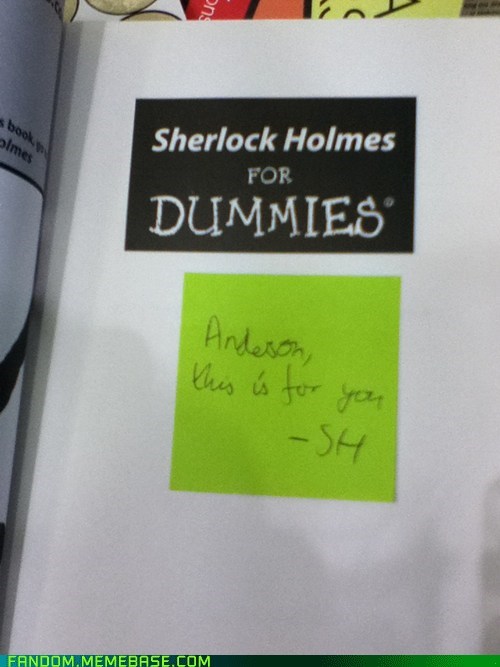 s book, g
olmes
Sherlock Holmes
FOR
DUMMIES®
Anderson,
this is for you
-SH
FANDOM.MEMEBASE.COM